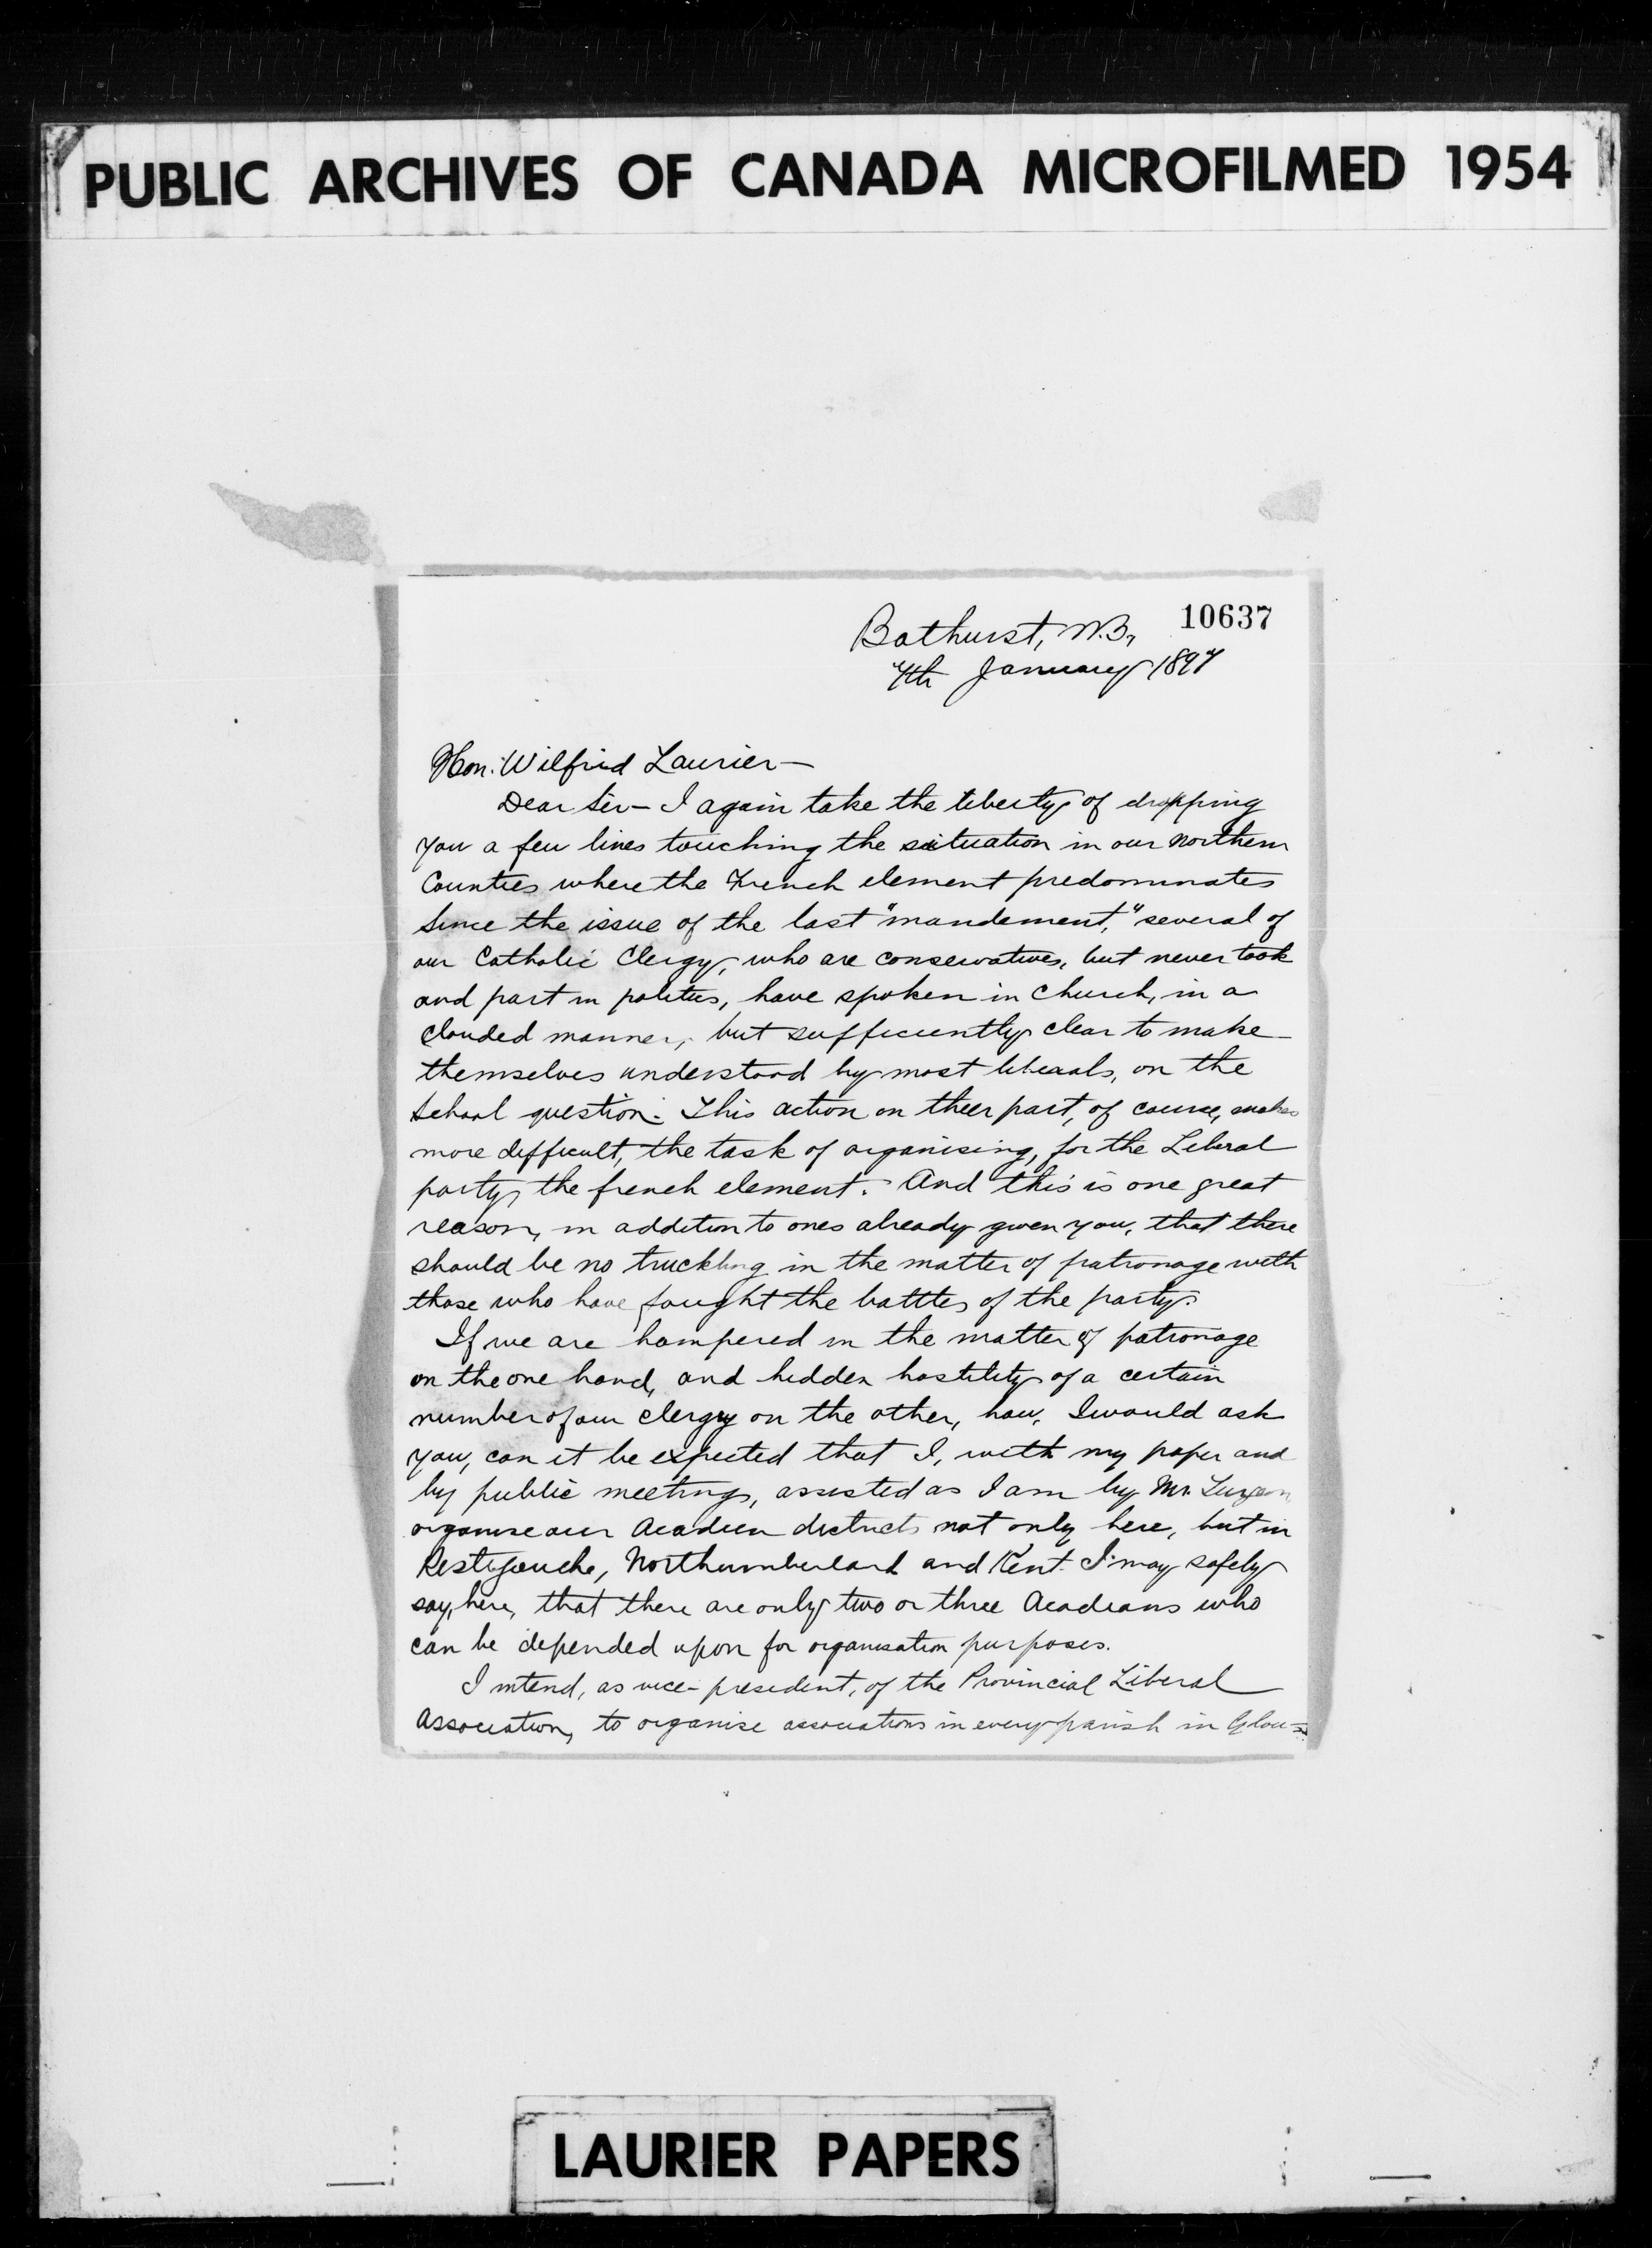 PUBLIC ARCHIVES OF CANADA MICROFILMED 1954
10637
Bathurst, N.B.,
7th January 1897
Hon. Wilfrid Laurier —
Dear Sir — I again take the liberty of dropping
you a few lines touching the situation in our Northern
Counties where the French element predominates
Since the issue of the last "mandement," several of
our Catholic Clergy, who are conservatives, but never took
and part in politics, have spoken in Church, in a
clouded manner, but sufficiently clear to make
themselves understood by most liberals, on the
School question. This action on their part, of course, makes
more difficult, the task of organising, for the Liberal
party, the french element. And this is one great
reason, in addition to ones already given you, that there
should be no truckling in the matter of patronage with
those who have fought the battles of the party.
If we are hampered in the matter of patronage
on the one hand, and hidden hostility of a certain
number of our clergy on the other, how, I would ask
you, can it be expected that I, with my paper and
by public meetings, assisted as I am by Mr. Turgeon
organise our Acadien districts not only here, but in
Restigouche, Northumberland and Kent. I may safely
say, here, that there are only two or three Acadians who
can be depended upon for organisation purposes.
I intend, as vice-president, of the Provincial Liberal
Association, to organise associations in every parish in Glou-
LAURIER PAPERS